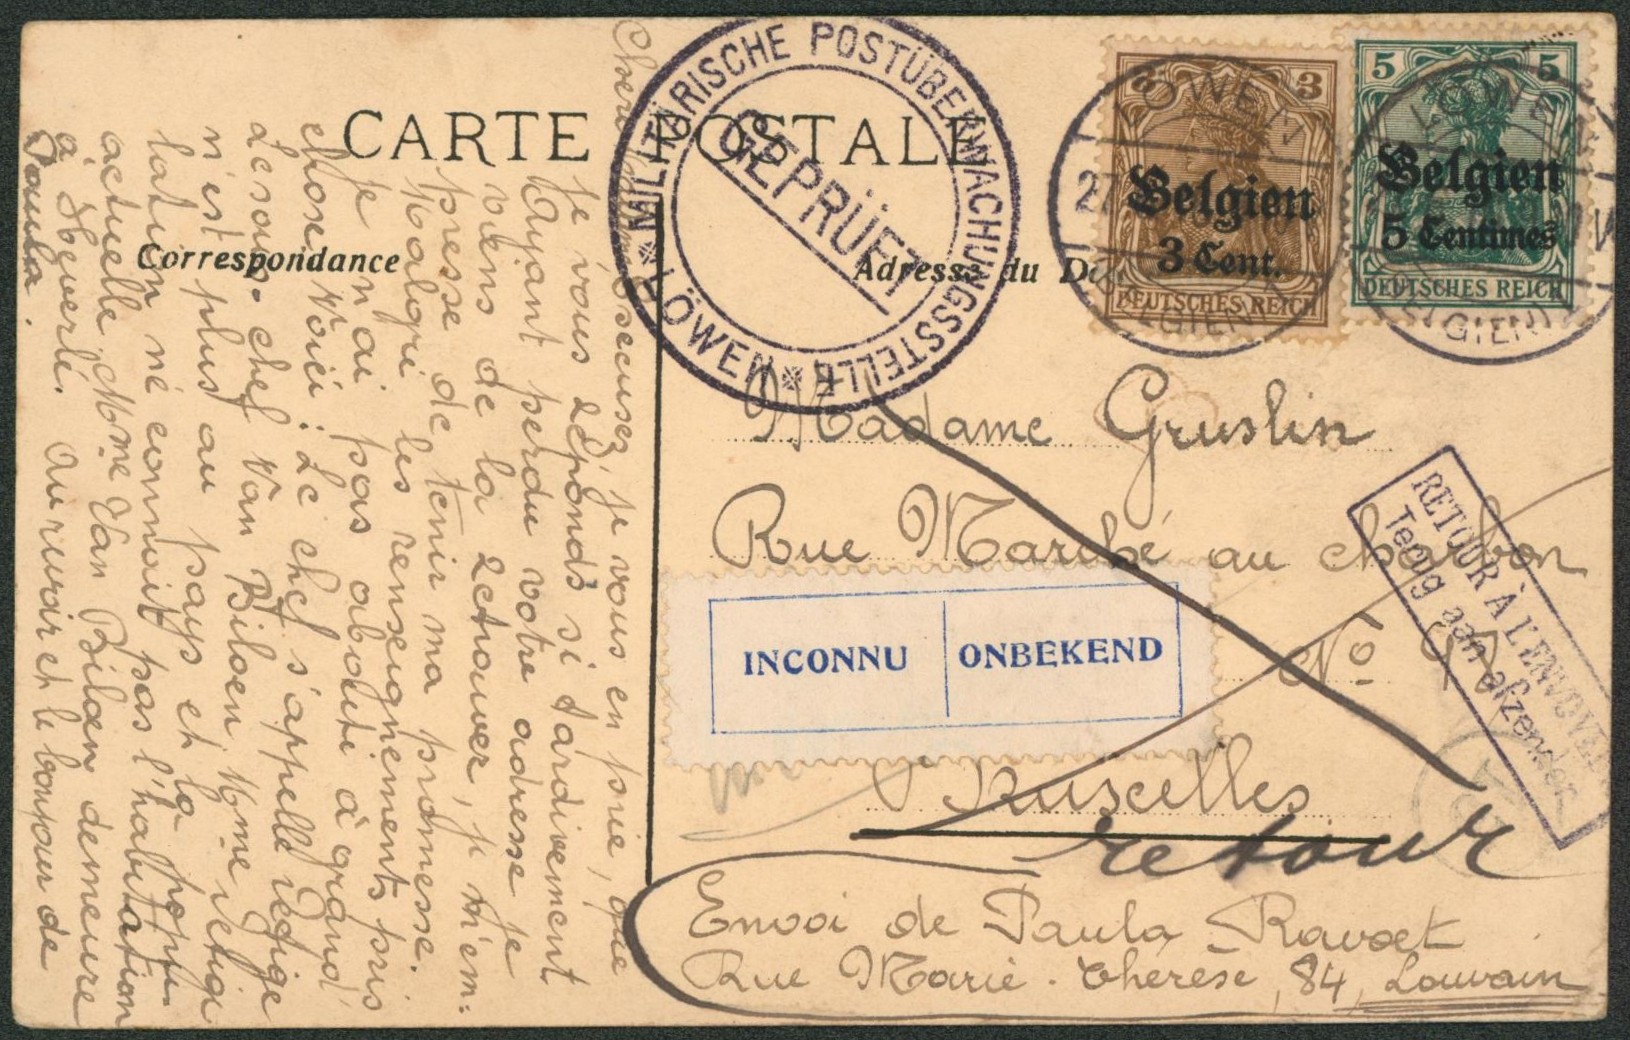 CARTE POSTALE
Correspondance
Adresse du
MILITÄRISCHE POSTÜBERWACHUNGSSTELLE
LÖWEN
GEPRÜFT
3 3
Belgien
3 Cent.
DEUTSCHES REICH
5 5
Belgien
5 Centimes
DEUTSCHES REICH
LÖWEN
27
(BELGIEN)
LÖWEN
(BELGIEN)
Madame Gruslin
Rue Marché au charbon
No
Bruxelles
INCONNU ONBEKEND
RETOUR À L'ENVOYEUR
Terug aan afzender
retour
Envoi de Paula Ravoet
Rue Marie-Thérèse, 84, Louvain
Chère
Excusez, je vous en prie, que
je vous réponds si tardivement
Ayant perdu votre adresse je
viens de la retrouver, je m'em-
presse de tenir ma promesse.
Malgré les renseignements pris
je n'ai pas aboutè à grand'
chose. Voici: Le chef s'appelle
Le sous-chef Van Biloen Mme
n'est plus au pays et la popu-
lation ne connait pas l'habitation
actuelle. Mme Van Biloen demeure
à Heverlé. Au revoir et le bonjour de
Paula.